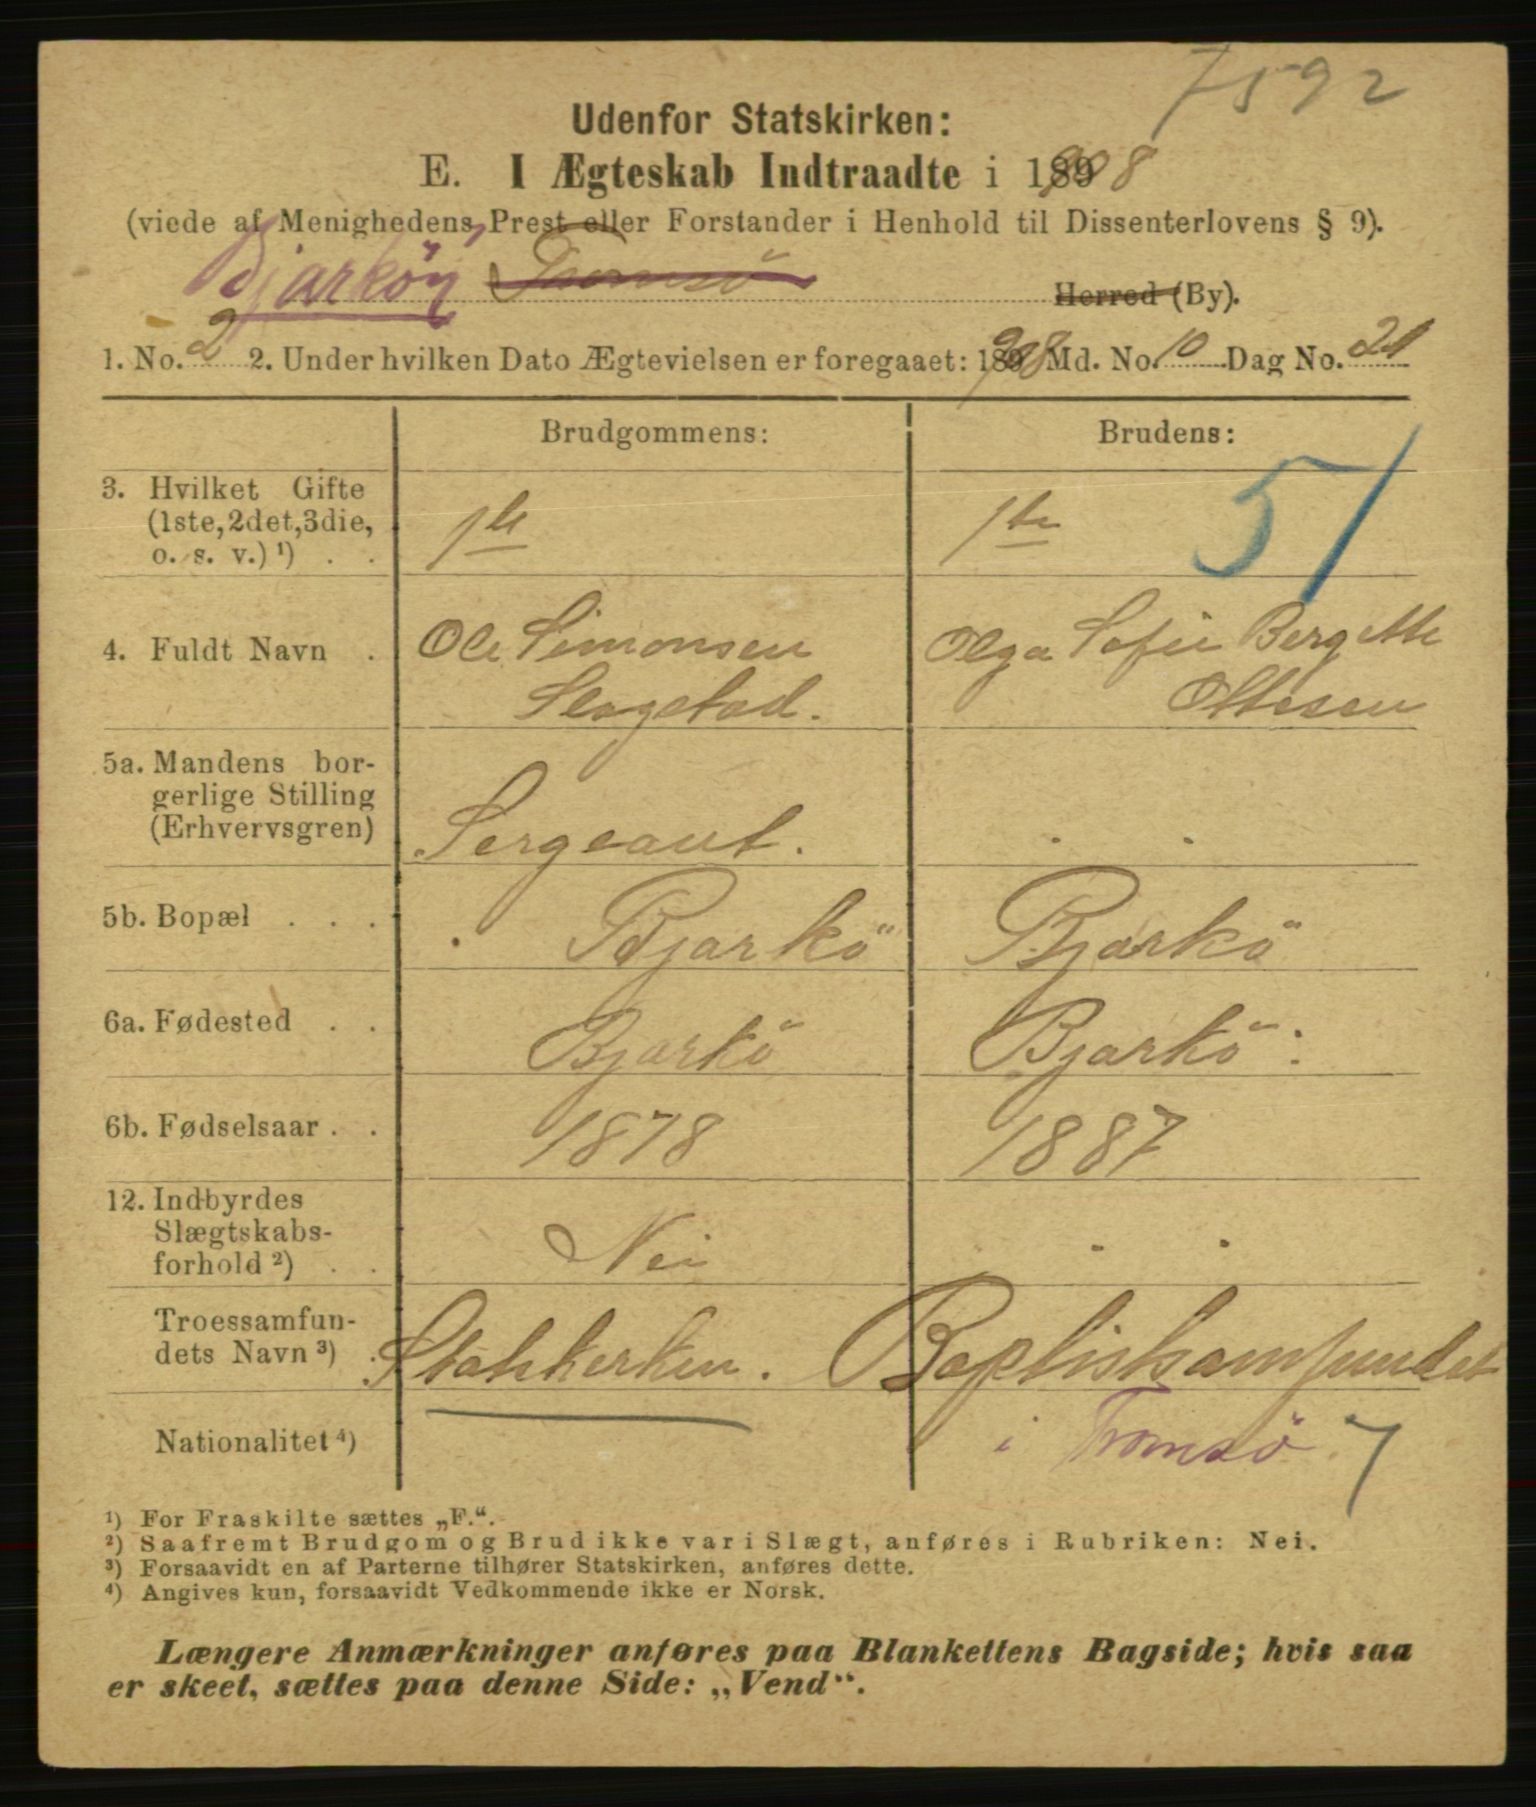 7592
Udenfor Statskirken:
E. I Ægteskab Indtraadte i 1908
(viede af Menighedens Prest eller Forstander i Henhold til Dissenterlovens § 9).
Bjarköy Tromsö Herred (By).
1. No. 2 2. Under hvilken Dato Ægtevielsen er foregaaet: 1908 Md. No. 10 Dag No. 21
Brudgommens: Brudens:
3. Hvilket Gifte (1ste, 2det, 3die, o. s. v.) ¹) . . 1ste 1ste 51
4. Fuldt Navn . Ole Simonsen Olga Sofie Bergette
Slagstad. Ottesen
5a. Mandens borgerlige Stilling (Erhvervsgren) Sergeant.
5b. Bopæl . . . Bjarkö Bjarkö
6a. Fødested . . Bjarkö Bjarkö
6b. Fødselsaar . . 1878 1887
12. Indbyrdes Slægtskabsforhold ²) . . Nei
Troessamfundets Navn ³) . Statskirken. Baptistsamfundet
Nationalitet ⁴) i Tromsö 7
¹) For Fraskilte sættes „F.“.
²) Saafremt Brudgom og Brud ikke var i Slægt, anføres i Rubriken: Nei.
³) Forsaavidt en af Parterne tilhører Statskirken, anføres dette.
⁴) Angives kun, forsaavidt Vedkommende ikke er Norsk.
Længere Anmærkninger anføres paa Blankettens Bagside; hvis saa
er skeet, sættes paa denne Side: „Vend“.